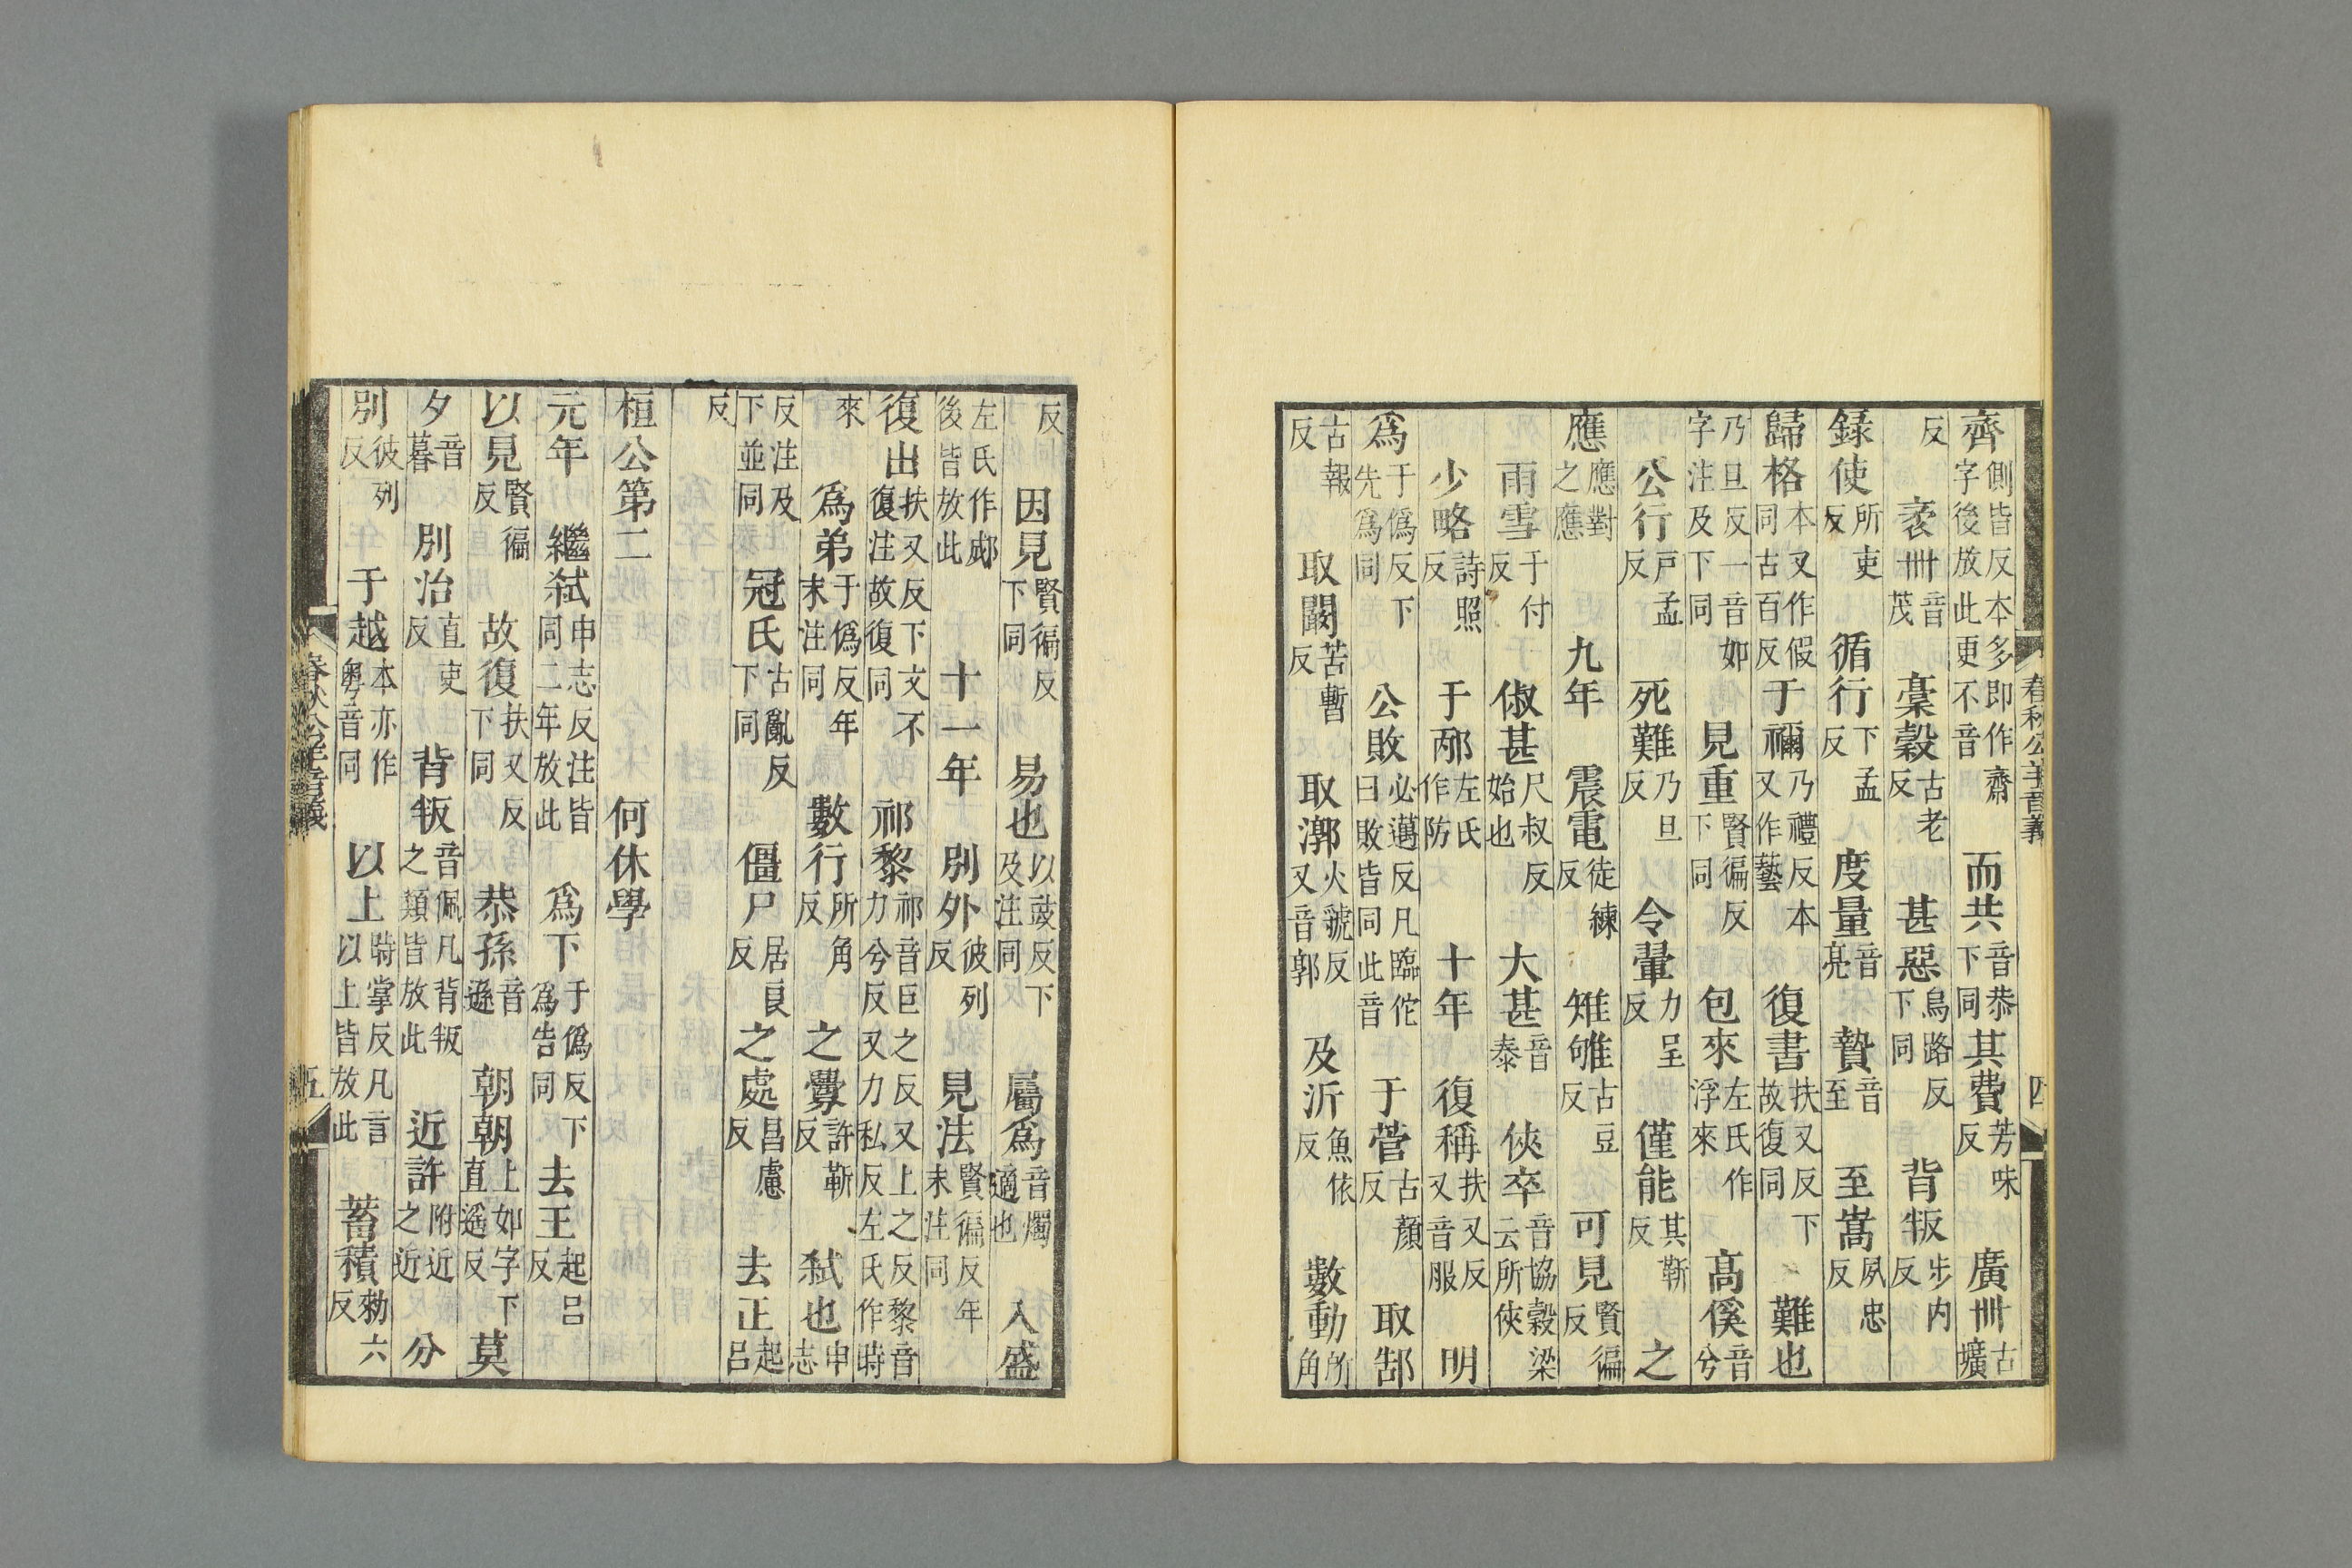 齊側皆反本多即作齋字後放此更不音而共音恭下同其費芳味反廣卌古壙
反袤卌音茂稾穀古老反甚惡烏路反下同背叛步内反
録使所吏反循行下孟反度量音亮贄音至至嵩夙忠反
歸格本又作假同古百反于禰乃禮反本又作藝復書扶又反下故復同難也
乃旦反一音如字注及下同見重賢徧反下同包來左氏作浮來高傒音兮
公行戸孟反死難乃旦反令翬力呈反僅能其靳反之
應應對之應九年震電徒練反雉雊古豆反可見賢徧反
雨雪于付反俶甚尺叔反始也大甚音泰俠卒音協穀梁云所俠
少略詩照反于邴左氏作防十年復稱扶又反又音服明
爲于僞反下先爲同公敗必邁反凡臨佗曰敗皆同此音于菅古顔反取郜
古報反取闞苦暫反取漷火虢反又音郭及沂魚依反數動所角
春秋公羊音義 四
反因見賢徧反下同易也以豉反下及注同屬爲音燭適也入盛
左氏作郕後皆放此十一年別外彼列反見法賢徧反年末注同
復出扶又反下文不復注故復同祁黎祁音巨之反又上之反黎音力兮反又力私反左氏作時
來爲弟于僞反年末注同數行所角反之釁許靳反弒也申志
反注及下並同冠氏古亂反下同僵尸居良反之處昌慮反去正起呂
反
桓公第二 何休學
元年繼弒申志反注皆同二年放此爲下于僞反下爲告同去王起呂反
以見賢徧反故復扶又反下同恭孫音遜朝朝上如字下直遥反莫
夕音暮別治直吏反背叛音佩凡背叛之類皆放此近許附近之近分
別彼列反于越本亦作粤音同以上時掌反凡言以上皆放此蓄積勑六反
春秋公羊音義 五